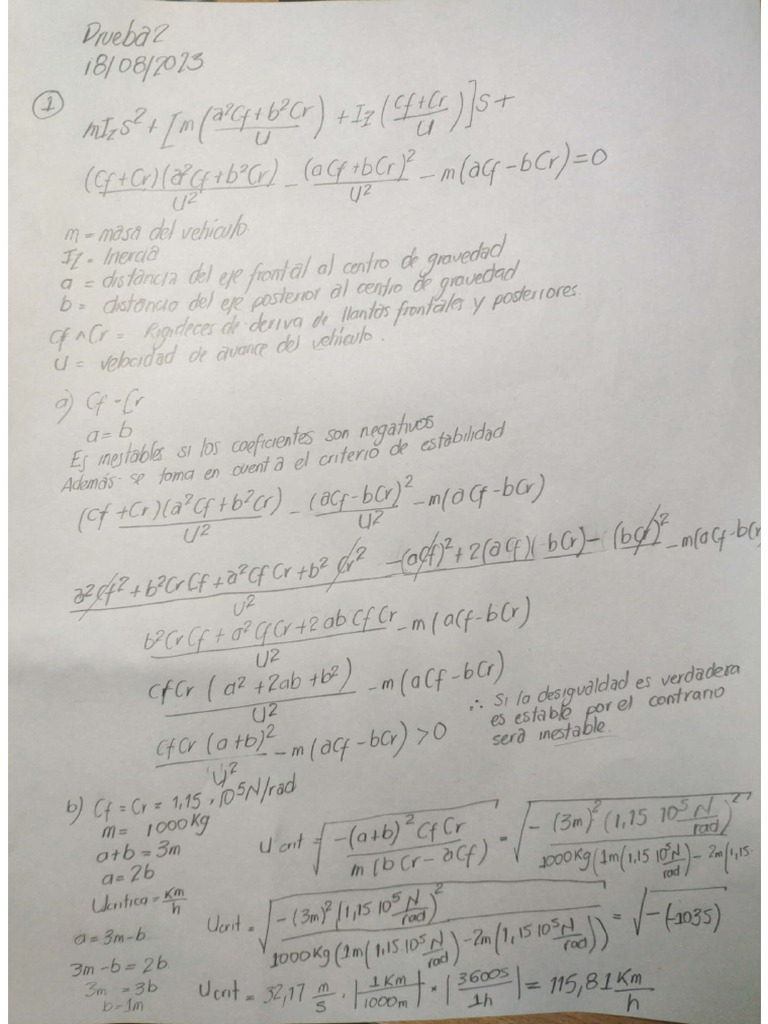 Prueba 2
18/08/2023
① mIzs² + [m((a²Cf+b²Cr)/U) + Iz((Cf+Cr)/U)]s +
((Cf+Cr)(a²Cf+b²Cr))/U² - (aCf+bCr)²/U² - m(aCf-bCr)=0
m = masa del vehículo
Iz = Inercia
a = distancia del eje frontal al centro de gravedad
b = distancia del eje posterior al centro de gravedad
Cf ∧ Cr = Rigideces de deriva de llantas frontales y posteriores.
U = velocidad de avance del vehículo.
a) Cf - Cr
a = b
Es inestables si los coeficientes son negativos
Además se toma en cuenta el criterio de estabilidad
((Cf+Cr)(a²Cf+b²Cr))/U² - (aCf-bCr)²/U² - m(aCf-bCr)
(a²Cf² + b²CrCf + a²CfCr + b²Cr² - (aCf)² + 2(aCf)(bCr) - (bCf)²)/U² - m(aCf-bCr
(b²CrCf + a²CfCr + 2abCfCr)/U² - m(aCf-bCr)
(CfCr(a²+2ab+b²))/U² - m(aCf-bCr)
(CfCr(a+b)²)/U² - m(aCf-bCr) > 0
∴ Si la desigualdad es verdadera
es estable por el contrario
será inestable.
b) Cf = Cr = 1,15 · 10⁵ N/rad
m = 1000 Kg
a+b = 3m
a = 2b
Ucritica = Km/h
a = 3m-b
3m-b = 2b
3m = 3b
b=1m
Ucrit = √((-(a+b)² CfCr)/(m(bCr-aCf))) = √((-(3m)²(1,15 10⁵ N/rad)²)/(1000Kg(1m(1,15 10⁵ N/rad) - 2m(1,15
Ucrit = √((-(3m)²(1,15 10⁵ N/rad)²)/(1000Kg(1m(1,15 10⁵ N/rad)-2m(1,15 10⁵ N/rad)))) = √(-(-1035))
Ucrit = 32,17 m/s · |1Km/1000m| * |3600s/1h| = 115,81 Km/h